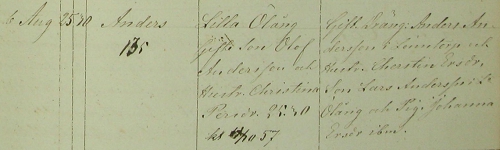 6 Aug 25 20 Anders
135
Lilla Öläng
gifte Son Olof
Andersson och
Hustr. Christina
Persdr. 25:20
57
Gift. Dräng. Anders An-
dersson i och
Hustr. Chersten Ersdr,
Son Lars Andersson i L.
Öläng och Pig. Johanna
Ersdr ibm.